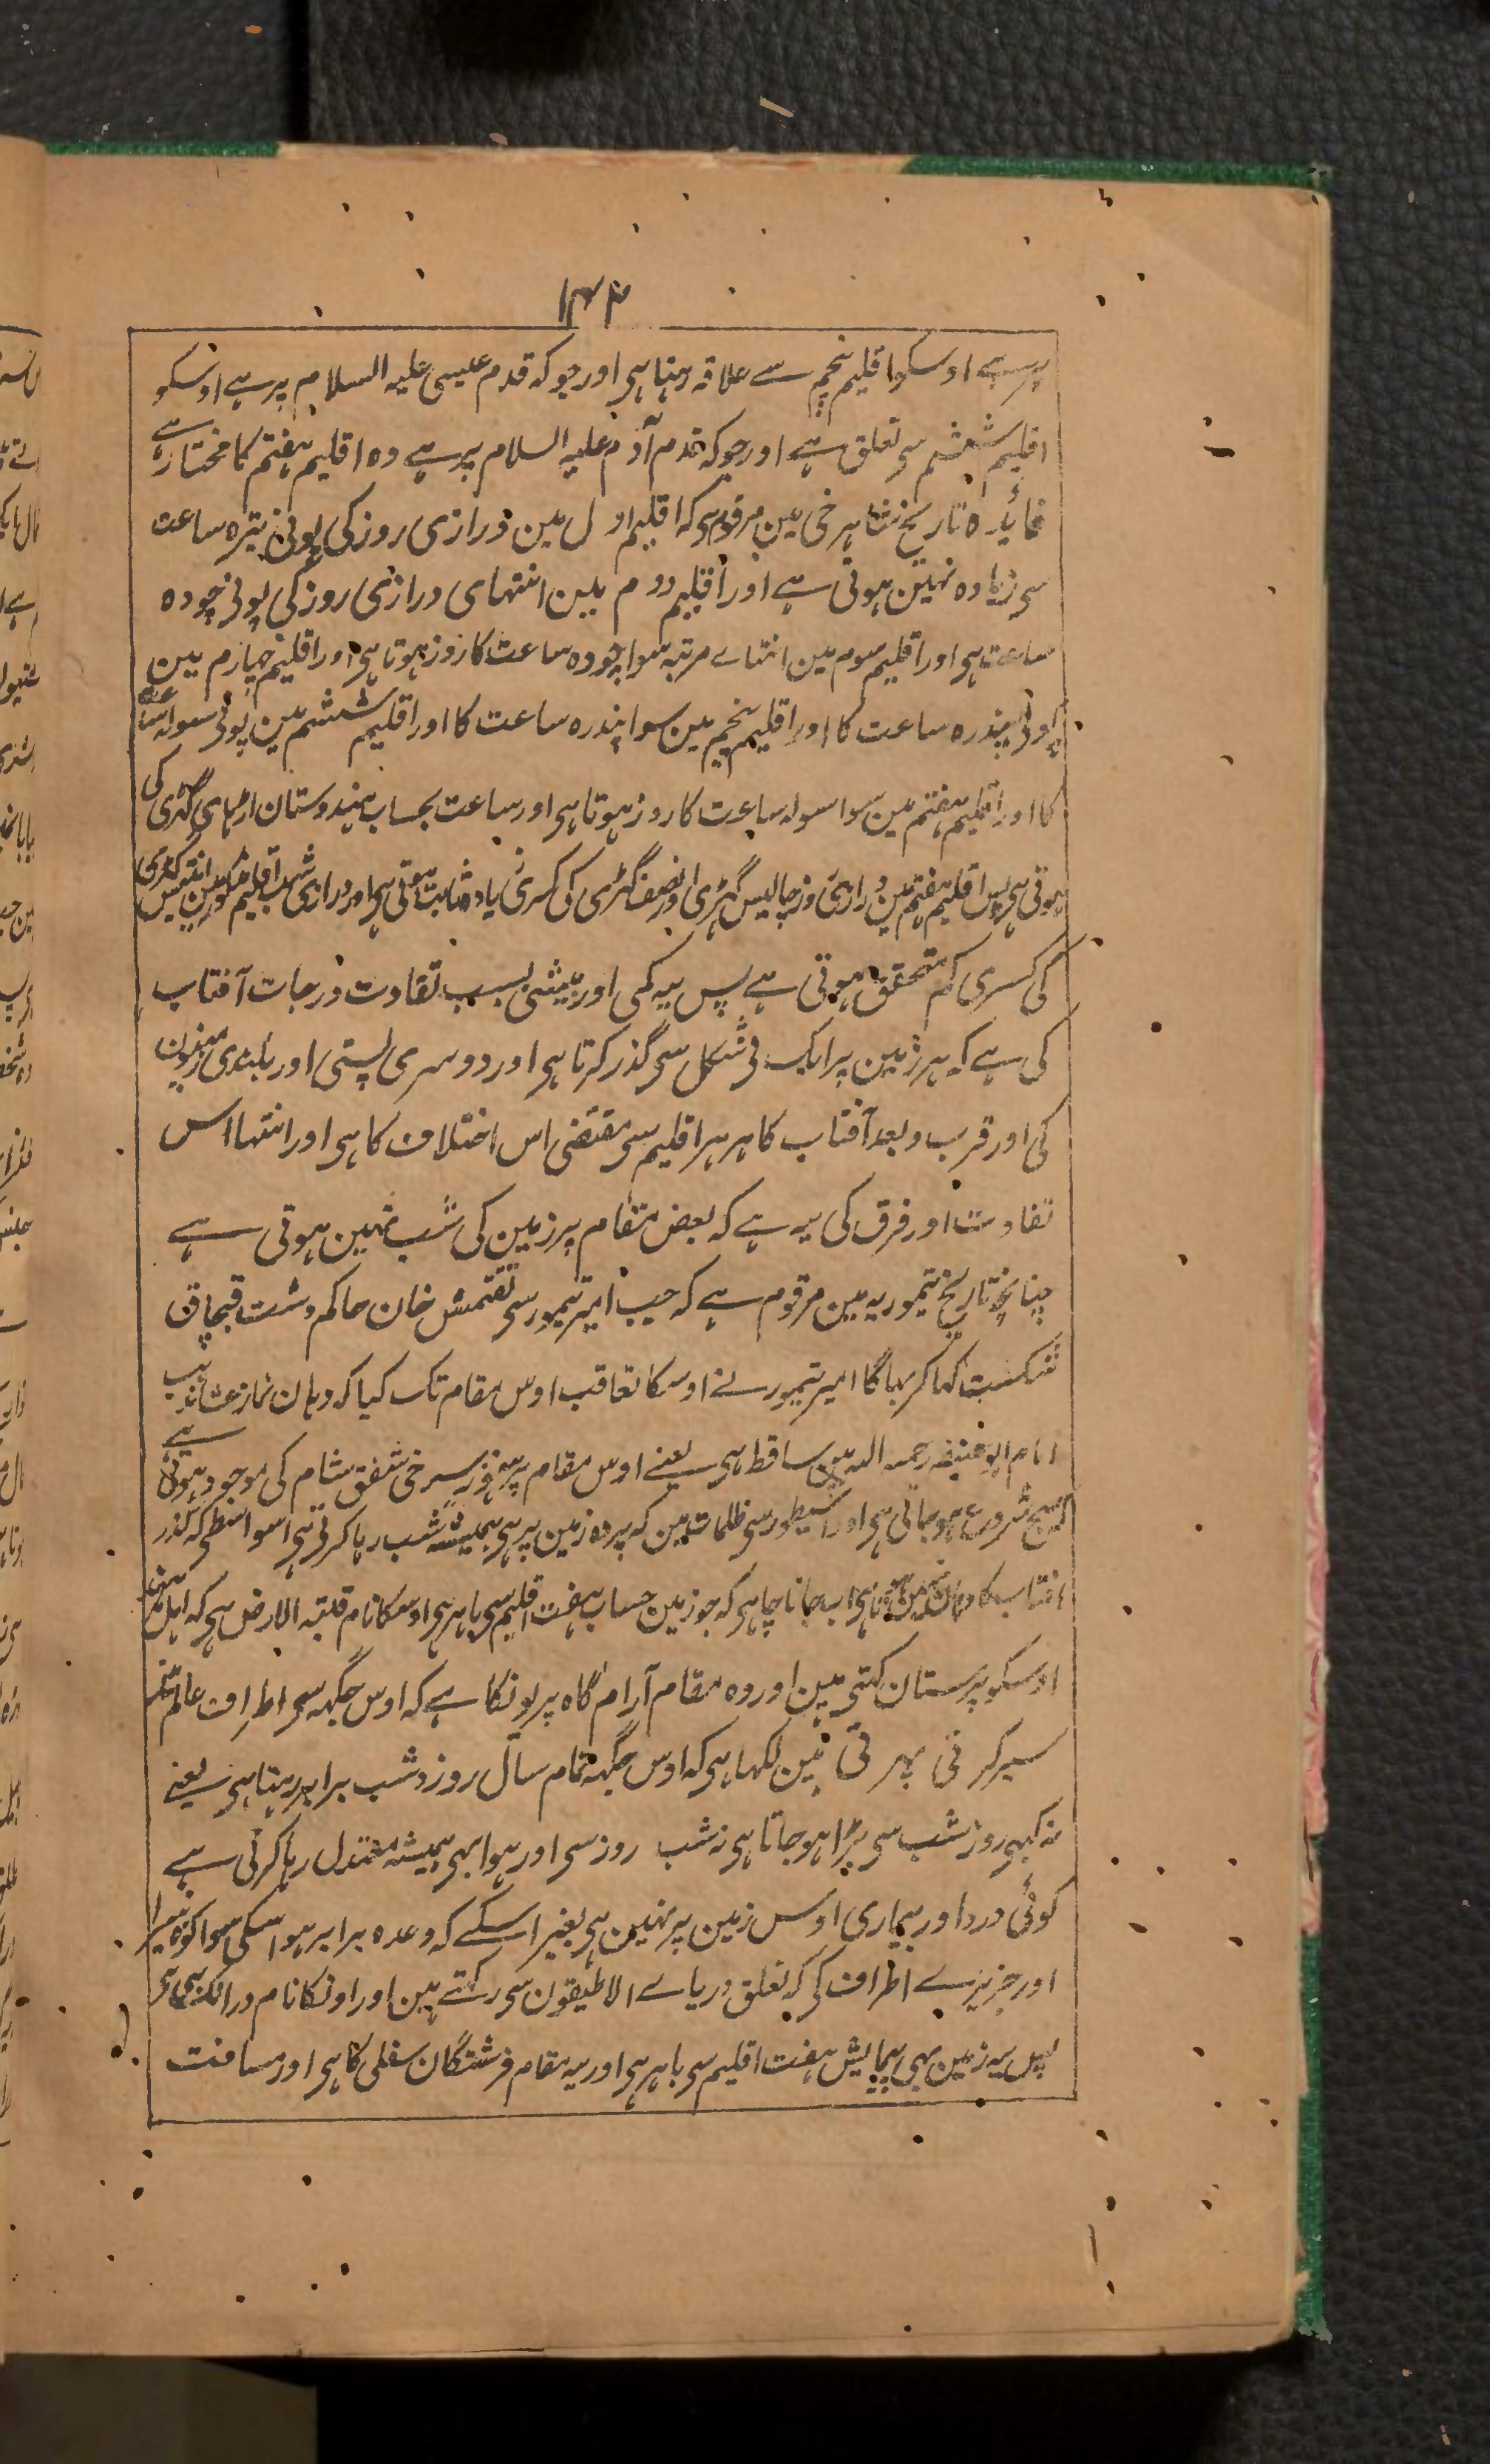 ۱۳۴
پر ہے اوسکو اقلیم پنجم سے علاقہ رہتا ہی اور جو کہ قدم عیسی علیہ السلام پر ہے اوسکو
اقلیم ششم سی تعلق ہے اور جو کہ قدم آدم علیہ السلام پر ہے وہ اقلیم ہفتم کا مختار ہے
فائدہ تاریخ شاہرخی مین مرقوم ہی کہ اقلیم اول مین درازی روز کی پونی تیرہ ساعت
سی زیادہ نہین ہوتی ہے اور اقلیم دوم مین انتہای درازی روز کی پونی چودہ
ساعت ہی اور اقلیم سوم مین انتہاے مرتبہ سوا چودہ ساعت کا روز ہوتا ہی اور اقلیم چہارم مین
پونی پندرہ ساعت کا اور اقلیم پنجم مین سوا پندرہ ساعت کا اور اقلیم ششم مین پونی سولہ ساعت
کا اور اقلیم ہفتم مین سوا سولہ ساعت کا روز ہوتا ہی اور ساعت بحساب ہندوستان اڑہای گہڑی کی
ہوتی ہی پس اقلیم ہفتم مین درازی روز چالیس گہڑی اور نصف گہڑی کی کسری زیادہ ثابت ہوتی ہی اور درازی شب اقلیم مذکور مین انتیس گہڑی
کی کسری کم متحقق ہوتی ہے پس یہ کمی اور بیشی بسبب تفاوت درجات آفتاب
کی ہے کہ ہر زمین پر ایک نی شکل سی گذر کرتا ہی اور دوسری پستی اور بلندی زمینون
کی اور قرب و بعد آفتاب کا ہر ہر اقلیم سی مقتضی اس اختلاف کا ہی اور انتہا اس
تفاوت اور فرق کی یہ ہے کہ بعض مقام پر زمین کی شب نہین ہوتی ہے
چنانچہ تاریخ تیموریہ مین مرقوم ہے کہ جب امیر تیمور سی تقتمش خان حاکم دشت قبچاق
شکست کہا کر بہاگا امیر تیمور نے اوسکا تعاقب اوس مقام تک کیا کہ وہان نماز عشا مذہب
امام ابو حنیفہ رحمہ اللہ مین ساقط ہی یعنے اوس مقام پر ہنوز سرخی شفق شام کی موجود ہوتی ہے
کہ صبح شروع ہو جاتی ہی اور اسیطور سی ظلمات مین کہ پردہ زمین پر ہی ہمیشہ شب رہا کرتی ہی اسواسطی کہ گذر
افتاب کا وہان نہین ہوتا ہی اب جانا چاہی کہ جو زمین حساب ہفت اقلیم سی باہر ہی اوسکا نام قلبۃ الارض ہی کہ اہل ہند
اوسکو پرستان کہتی ہین اور وہ مقام آرام گاہ پریونکا ہے کہ اوس جگہہ سی اطراف عالم مین
سیر کرتی پہرتی ہین لکہا ہی کہ اوس جگہہ تمام سال روز و شب برابر رہتا ہی یعنے
نہ کبہی روز شب سی بڑا ہو جاتا ہی نہ شب روز سی اور ہوا بہی ہمیشہ معتدل رہا کرتی ہے
کوئی درد اور بیماری اوس زمین پر نہین ہی بغیر اسکے کہ وعدہ برابر ہو اسکی سوا کوہ
اور جزیرے اطراف کی کہ تعلق دریاے الاطیقون سی رکہتے ہین اور اونکا نام
پس یہ زمین بہی پیمایش ہفت اقلیم سی باہر ہی اور یہ مقام فرشتگان سفلی کا ہی اور مسافت